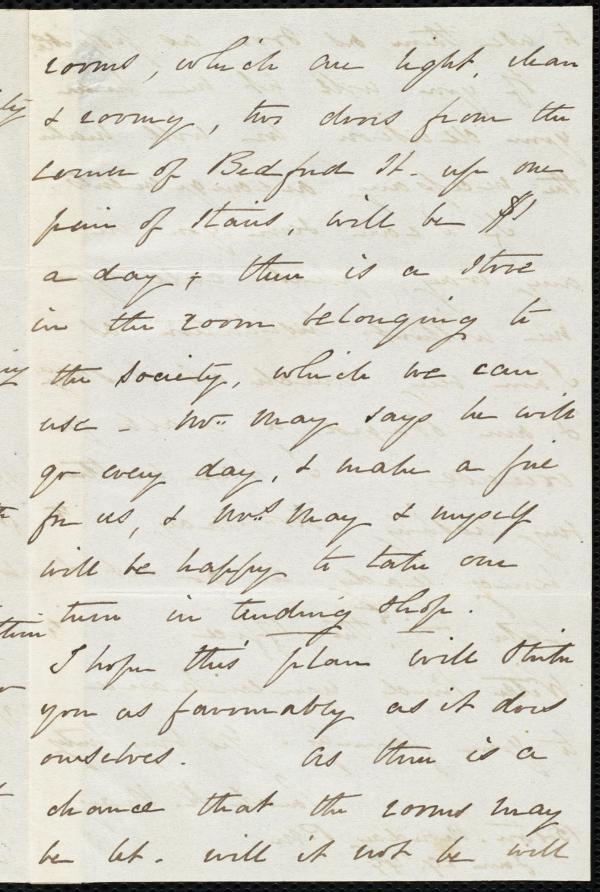 rooms, which are light, clean
& roomy, two doors from the
corner of Bedford St. up one
pair of stairs, will be $1
a day, & there is a stove
in the room belonging to
the Society, which we can
use - Mr. May says he will
go every day, & make a fire
for us, & Mrs. May & myself
will be happy to take our
turn in tending shop.
I hope this plan will strike
you as favourably as it does
ourselves. As there is a
chance that the rooms may
be let. will it not be well